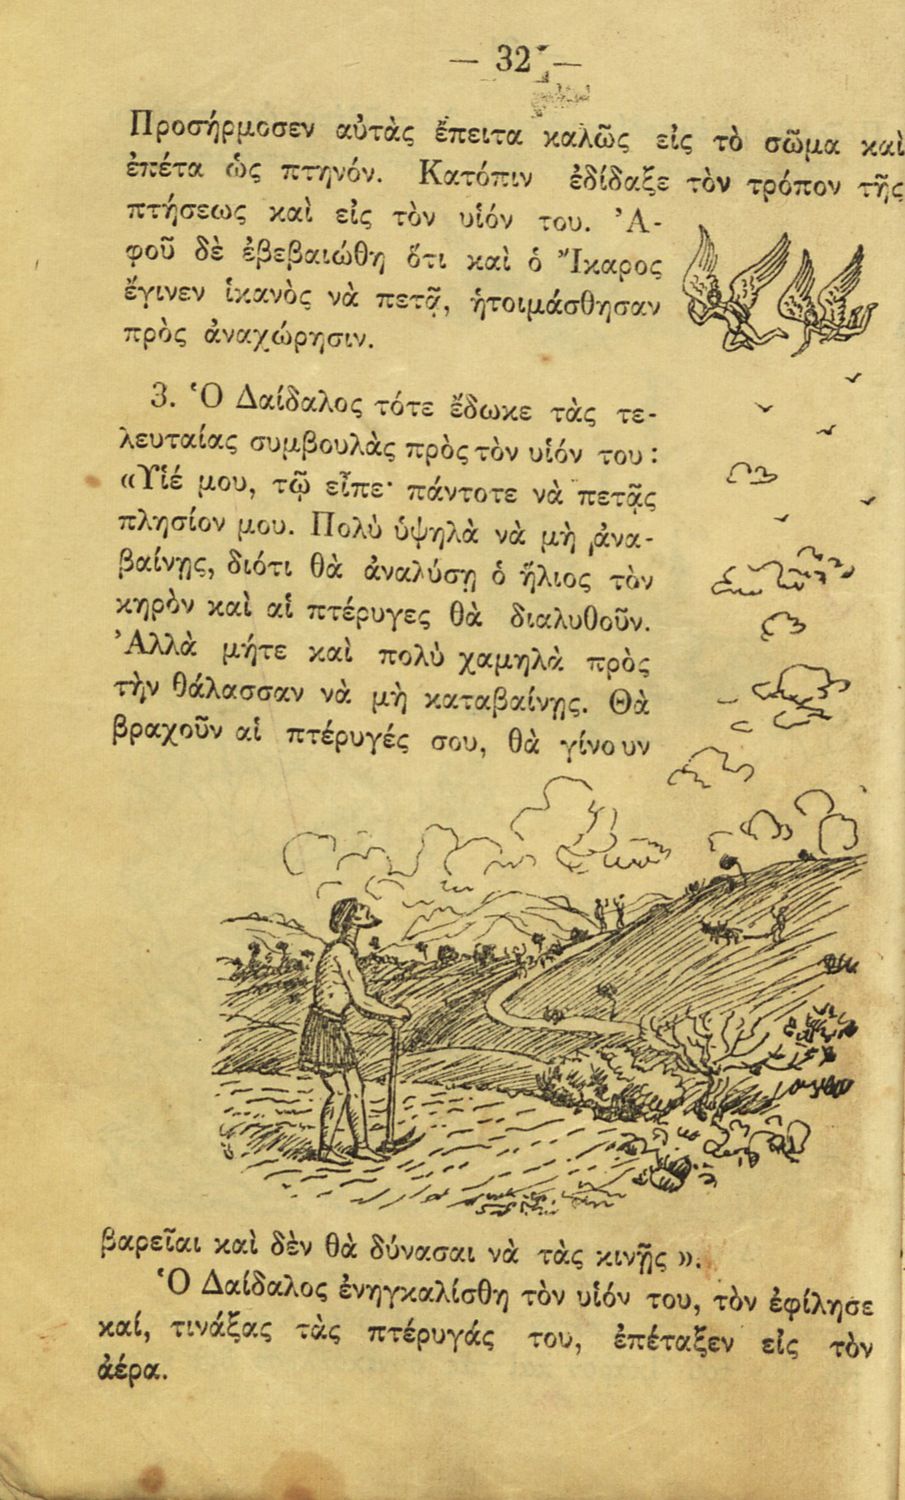 — 32 —
Προσήρμοσεν αὐτὰς ἔπειτα καλῶς εἰς τὸ σῶμα καὶ
ἐπέτα ὡς πτηνόν. Κατόπιν ἐδίδαξε τὸν τρόπον τῆς
πτήσεως καὶ εἰς τὸν υἱόν του. Ἀ-
φοῦ δὲ ἐβεβαιώθη ὅτι καὶ ὁ Ἴκαρος
ἔγινεν ἱκανὸς νὰ πετᾷ, ἡτοιμάσθησαν
πρὸς ἀναχώρησιν.
3. Ὁ Δαίδαλος τότε ἔδωκε τὰς τε-
λευταίας συμβουλὰς πρὸς τὸν υἱόν του :
«Υἱέ μου, τῷ εἶπε· πάντοτε νὰ πετᾷς
πλησίον μου. Πολὺ ὑψηλὰ νὰ μὴ ἀνα-
βαίνῃς, διότι θὰ ἀναλύσῃ ὁ ἥλιος τὸν
κηρὸν καὶ αἱ πτέρυγες θὰ διαλυθοῦν.
Ἀλλὰ μήτε καὶ πολὺ χαμηλὰ πρὸς
τὴν θάλασσαν νὰ μὴ καταβαίνῃς. Θὰ
βραχοῦν αἱ πτέρυγές σου, θὰ γίνουν
βαρεῖαι καὶ δὲν θὰ δύνασαι νὰ τὰς κινῇς ».
Ὁ Δαίδαλος ἐνηγκαλίσθη τὸν υἱόν του, τὸν ἐφίλησε
καί, τινάξας τὰς πτέρυγάς του, ἐπέταξεν εἰς τὸν
ἀέρα.